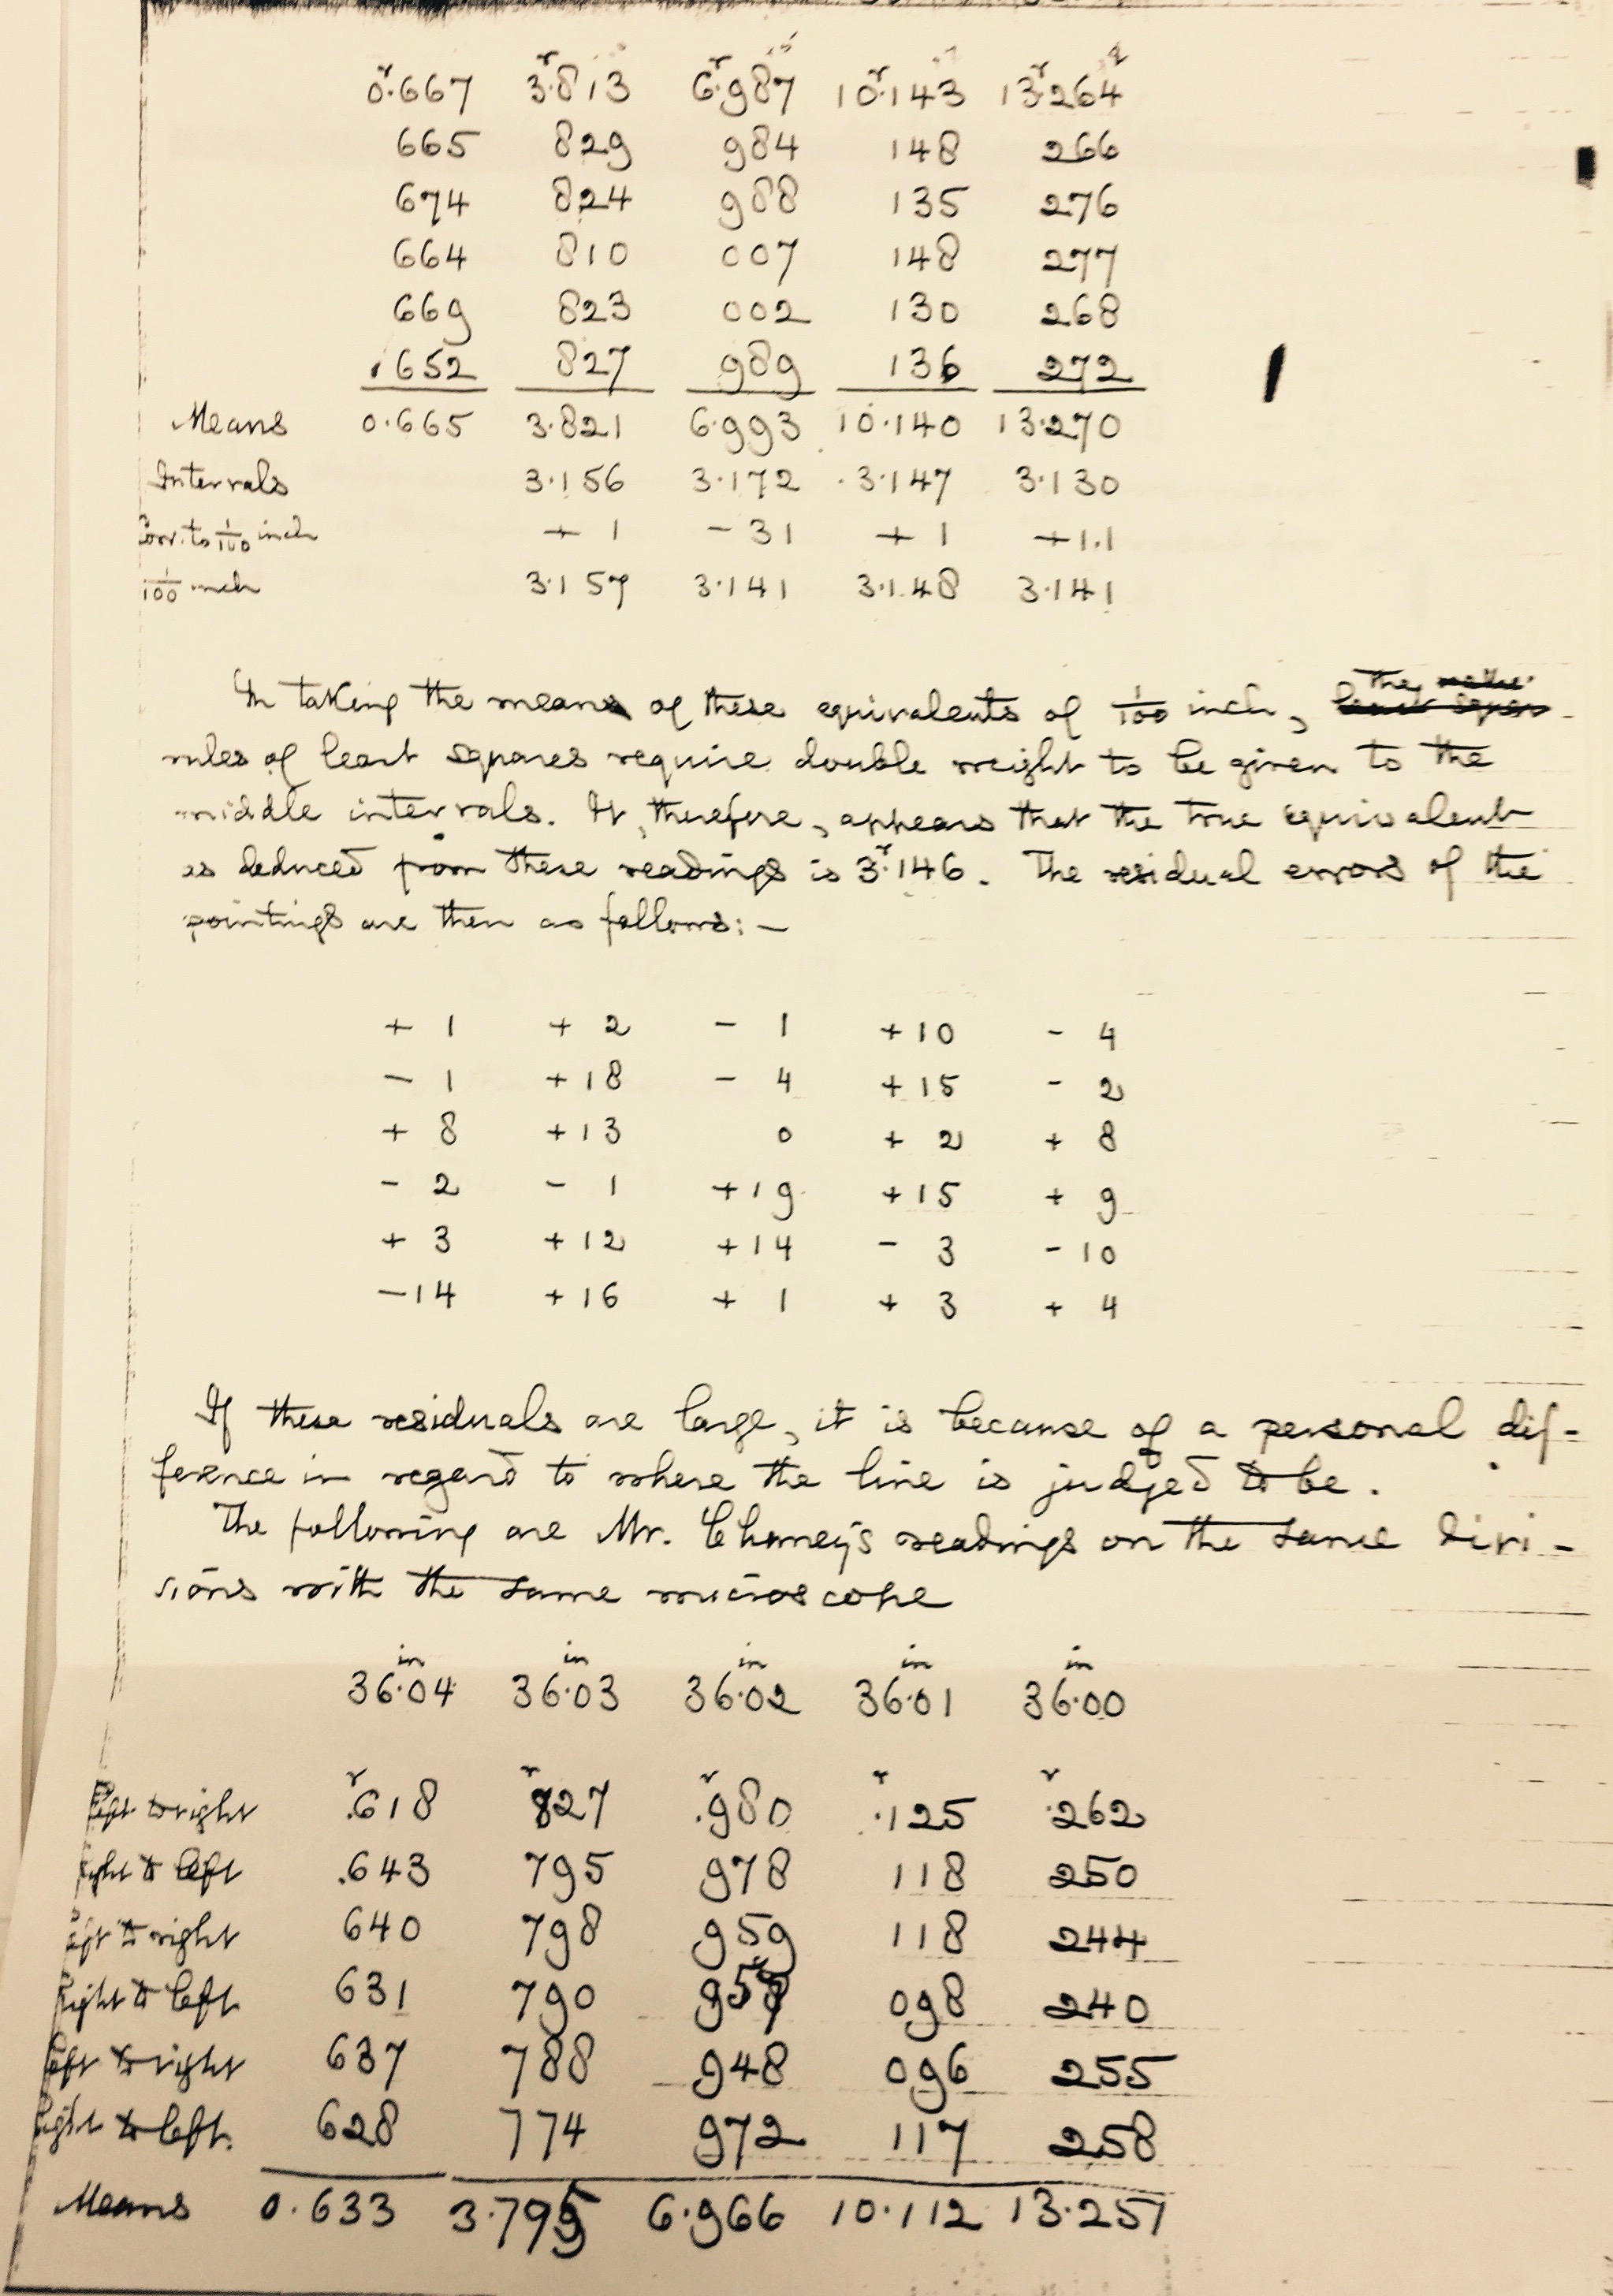 0.ʳ667 3.ʳ813 6.ʳ987 10.ʳ143 13.ʳ264
665 829 984 148 266
674 824 988 135 276
664 810 007 148 277
669 823 002 130 268
.652 827 989 136 272
Means 0.665 3.821 6.993 10.140 13.270
Intervals 3.156 3.172 3.147 3.130
Corr. to 1/100 inch + 1 - 31 + 1 + 1.1
1/100 inch 3.157 3.141 3.148 3.141
In taking the means of these equivalents of 1/100 inch, the
rules of least squares require double weight to be given to the
middle intervals. It, therefore, appears that the true equivalent
as deduced from these readings is 3.ʳ146. The residual errors of the
pointings are then as follows:—
+ 1 + 2 - 1 +10 - 4
- 1 +18 - 4 +15 - 2
+ 8 +13 0 + 2 + 8
- 2 - 1 +19 +15 + 9
+ 3 +12 +14 - 3 -10
-14 +16 + 1 + 3 + 4
If these residuals are large, it is because of a personal dif-
ference in regard to where the line is judged to be.
The following are Mr. Chaney's readings on the same divi-
sions with the same microscope
36.ⁱⁿ04 36.ⁱⁿ03 36.ⁱⁿ02 36.ⁱⁿ01 36.ⁱⁿ00
Left to right .ʳ618 ʳ827 .ʳ980 .ʳ125 .ʳ262
Right to left .643 795 978 118 250
Left to right 640 798 959 118 244
Right to left 631 790 098 240
Left to right 637 788 948 096 255
Right to left. 628 774 972 117 258
Means 0.633 3.795 6.966 10.112 13.251